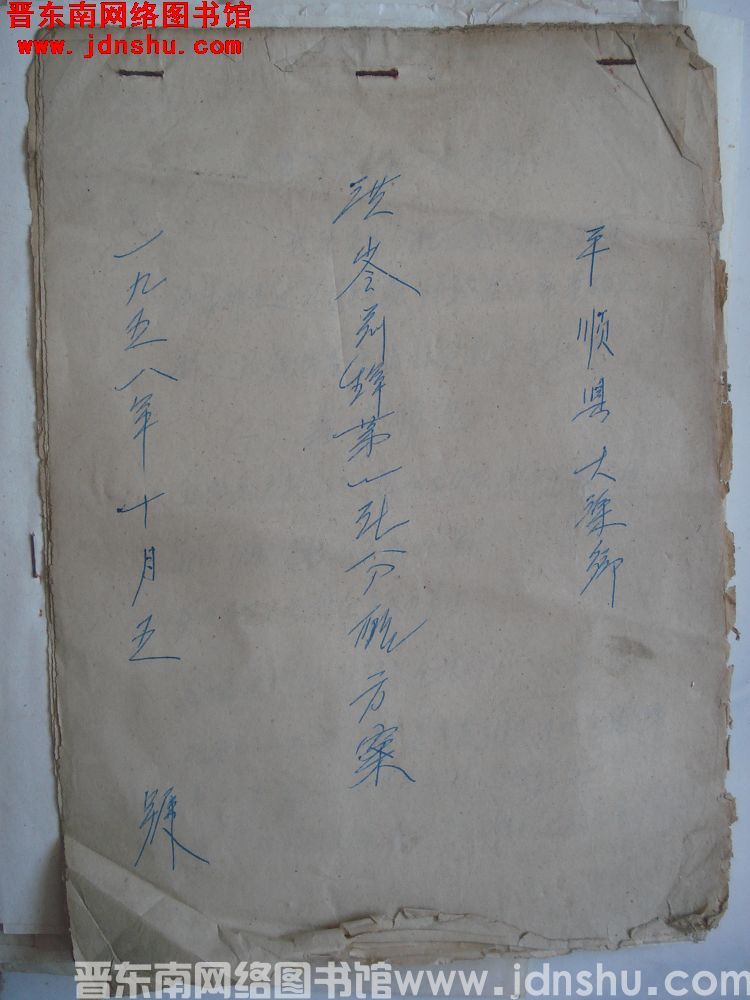 晋东南网络图书馆
www.jdnshu.com
平顺县大渠乡
洪岭前锋第一社分配方案
一九五八年十月五
號
晋东南网络图书馆www.jdnshu.com